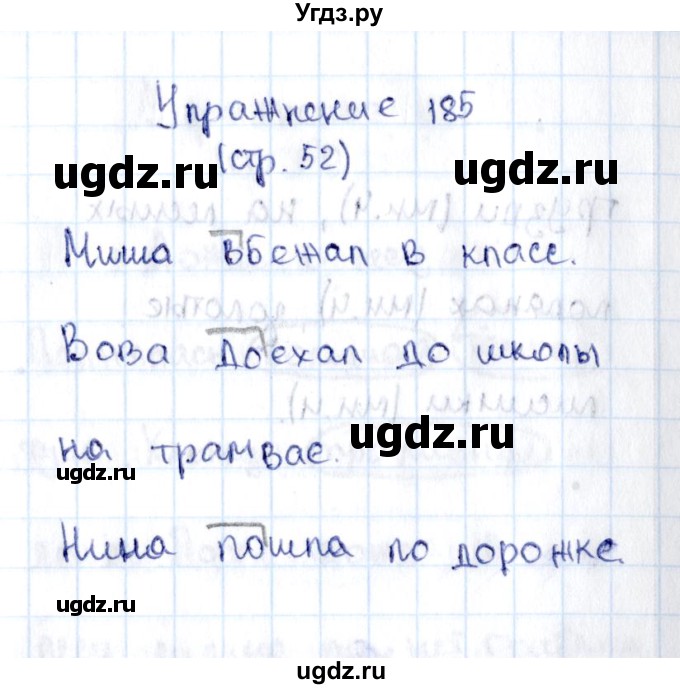 Угдз.ру
Упражнение 185
(стр. 52)
ugdz.ru
ugdz.ru
Миша вбежал в класс.
Вова доехал до школы
ugdz.ru
на трамвае.
ugdz.ru
Нина пошла по дорожке.
ugdz.ru
ugdz.ru
ugdz.ru